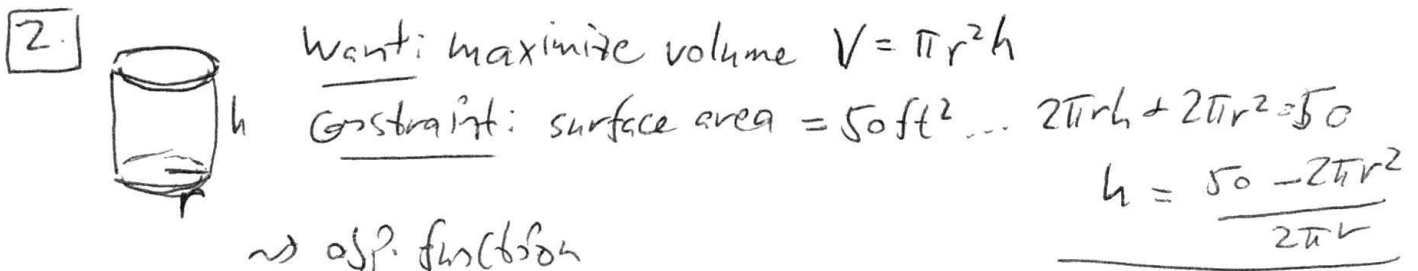 2.
Want: maximize volume V = πr²h
h
Constraint: surface area = 50ft² ... 2πrh + 2πr² = 50
r
h = \frac{50 - 2πr²}{2πr}
~> obj. function